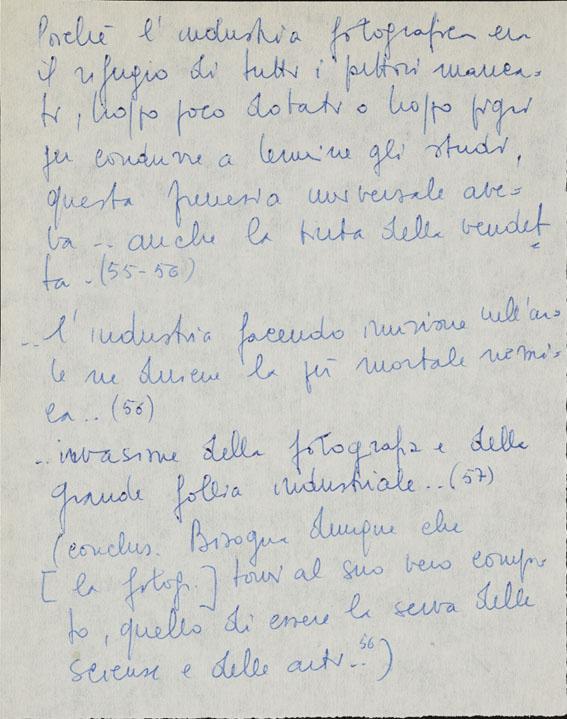 Poiché l'industria fotografica era
il rifugio di tutti i pittori manca-
ti, troppo poco dotati o troppo pigri
per condurre a termine gli studi,
questa frenesia universale ave-
va .. anche la tinta della vendet
ta - (55-56)
.. l'industria facendo irruzione nell'ar-
te ne diviene la più mortale nemi-
ca .. (56)
.. invasione della fotografia e della
grande follia industriale .. (57)
(conclus. Bisogna dunque che
[la fotogr.] torni al suo vero compi-
to, quello di essere la serva delle
scienze e delle arti .. 56)